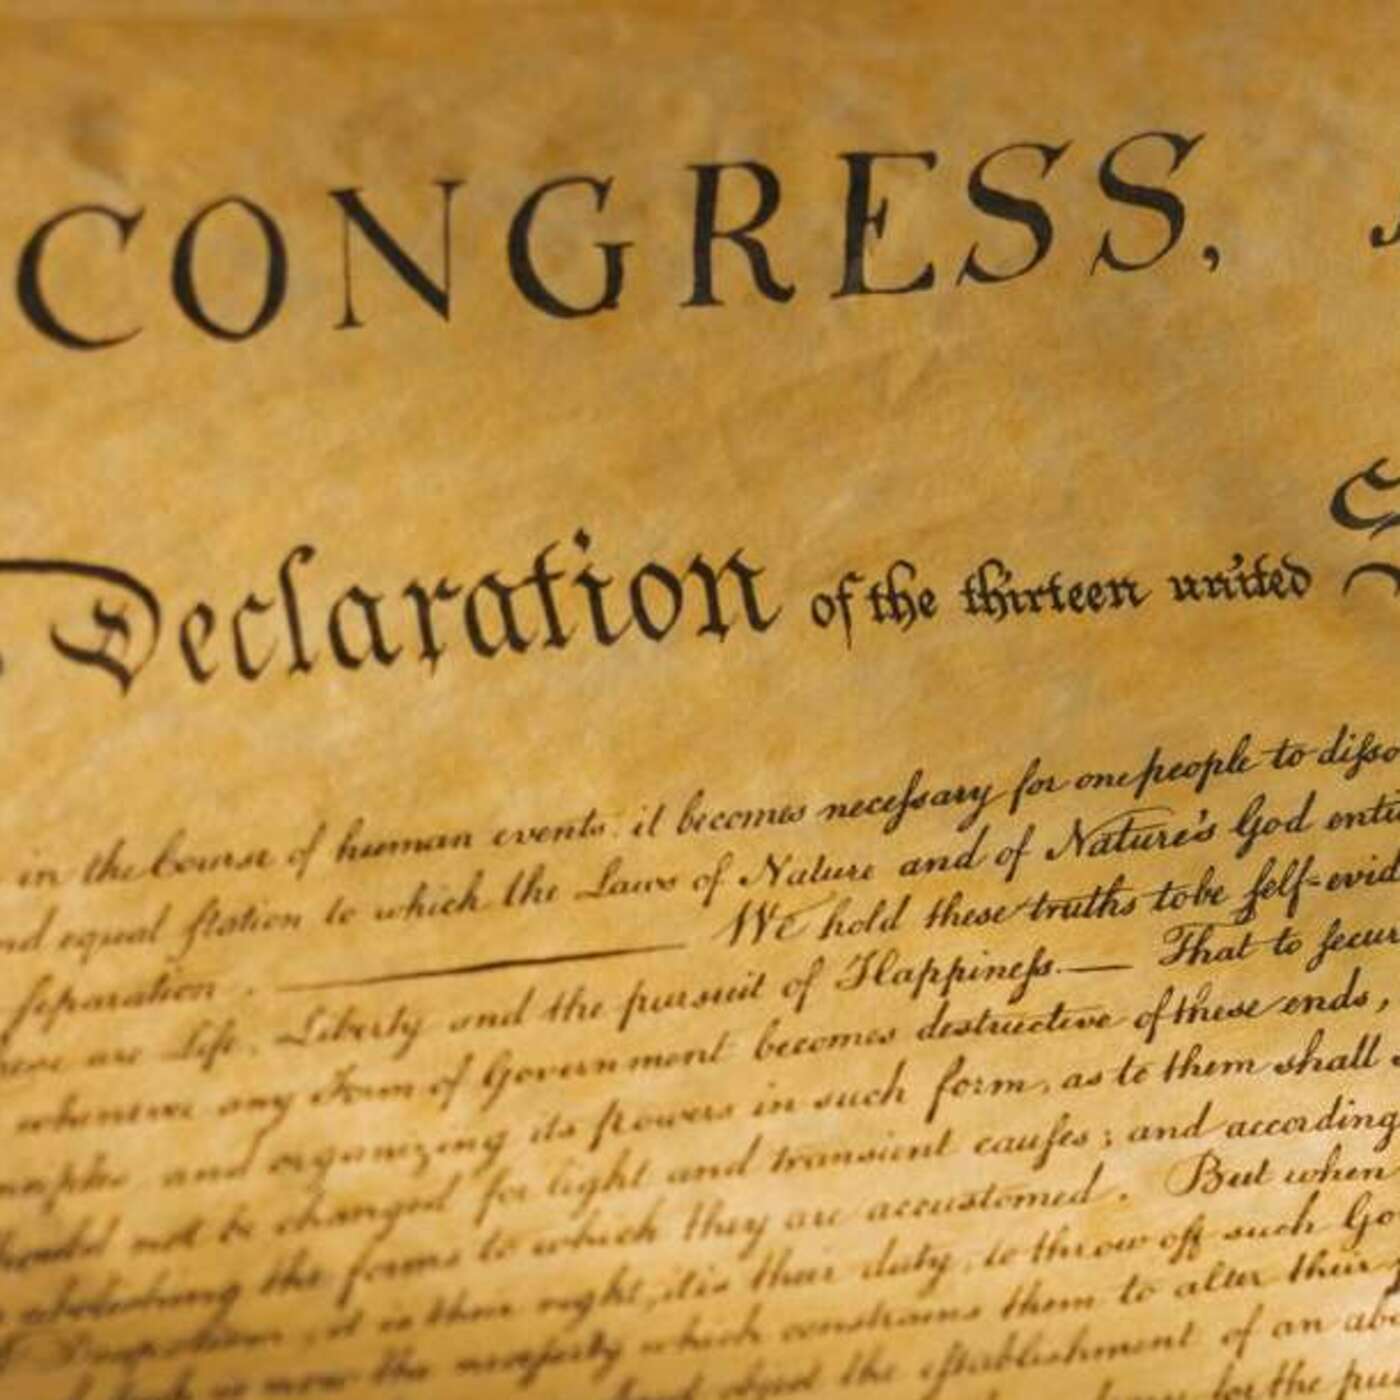 CONGRESS,
Declaration of the thirteen united S
in the Course of human events, it becomes neceſsary for one people to diſso
nd equal ſtation to which the Laws of Nature and of Nature's God enti
ſeparation. We hold these truths to be ſelf-evid
are Life, Liberty and the pursuit of Happineſs.— That to ſecur
whenever any Form of Government becomes destructive of these ends,
and organizing its powers in such form, as to them shall s
not be changed for light and transient cauſes; and according
abolishing the forms to which they are accustomed. But when
Despotism, it is their right, it is their duty, to throw off such Go
is now the neceſsity which constrains them to alter their
object the eſtablishment of an abs
for the pu